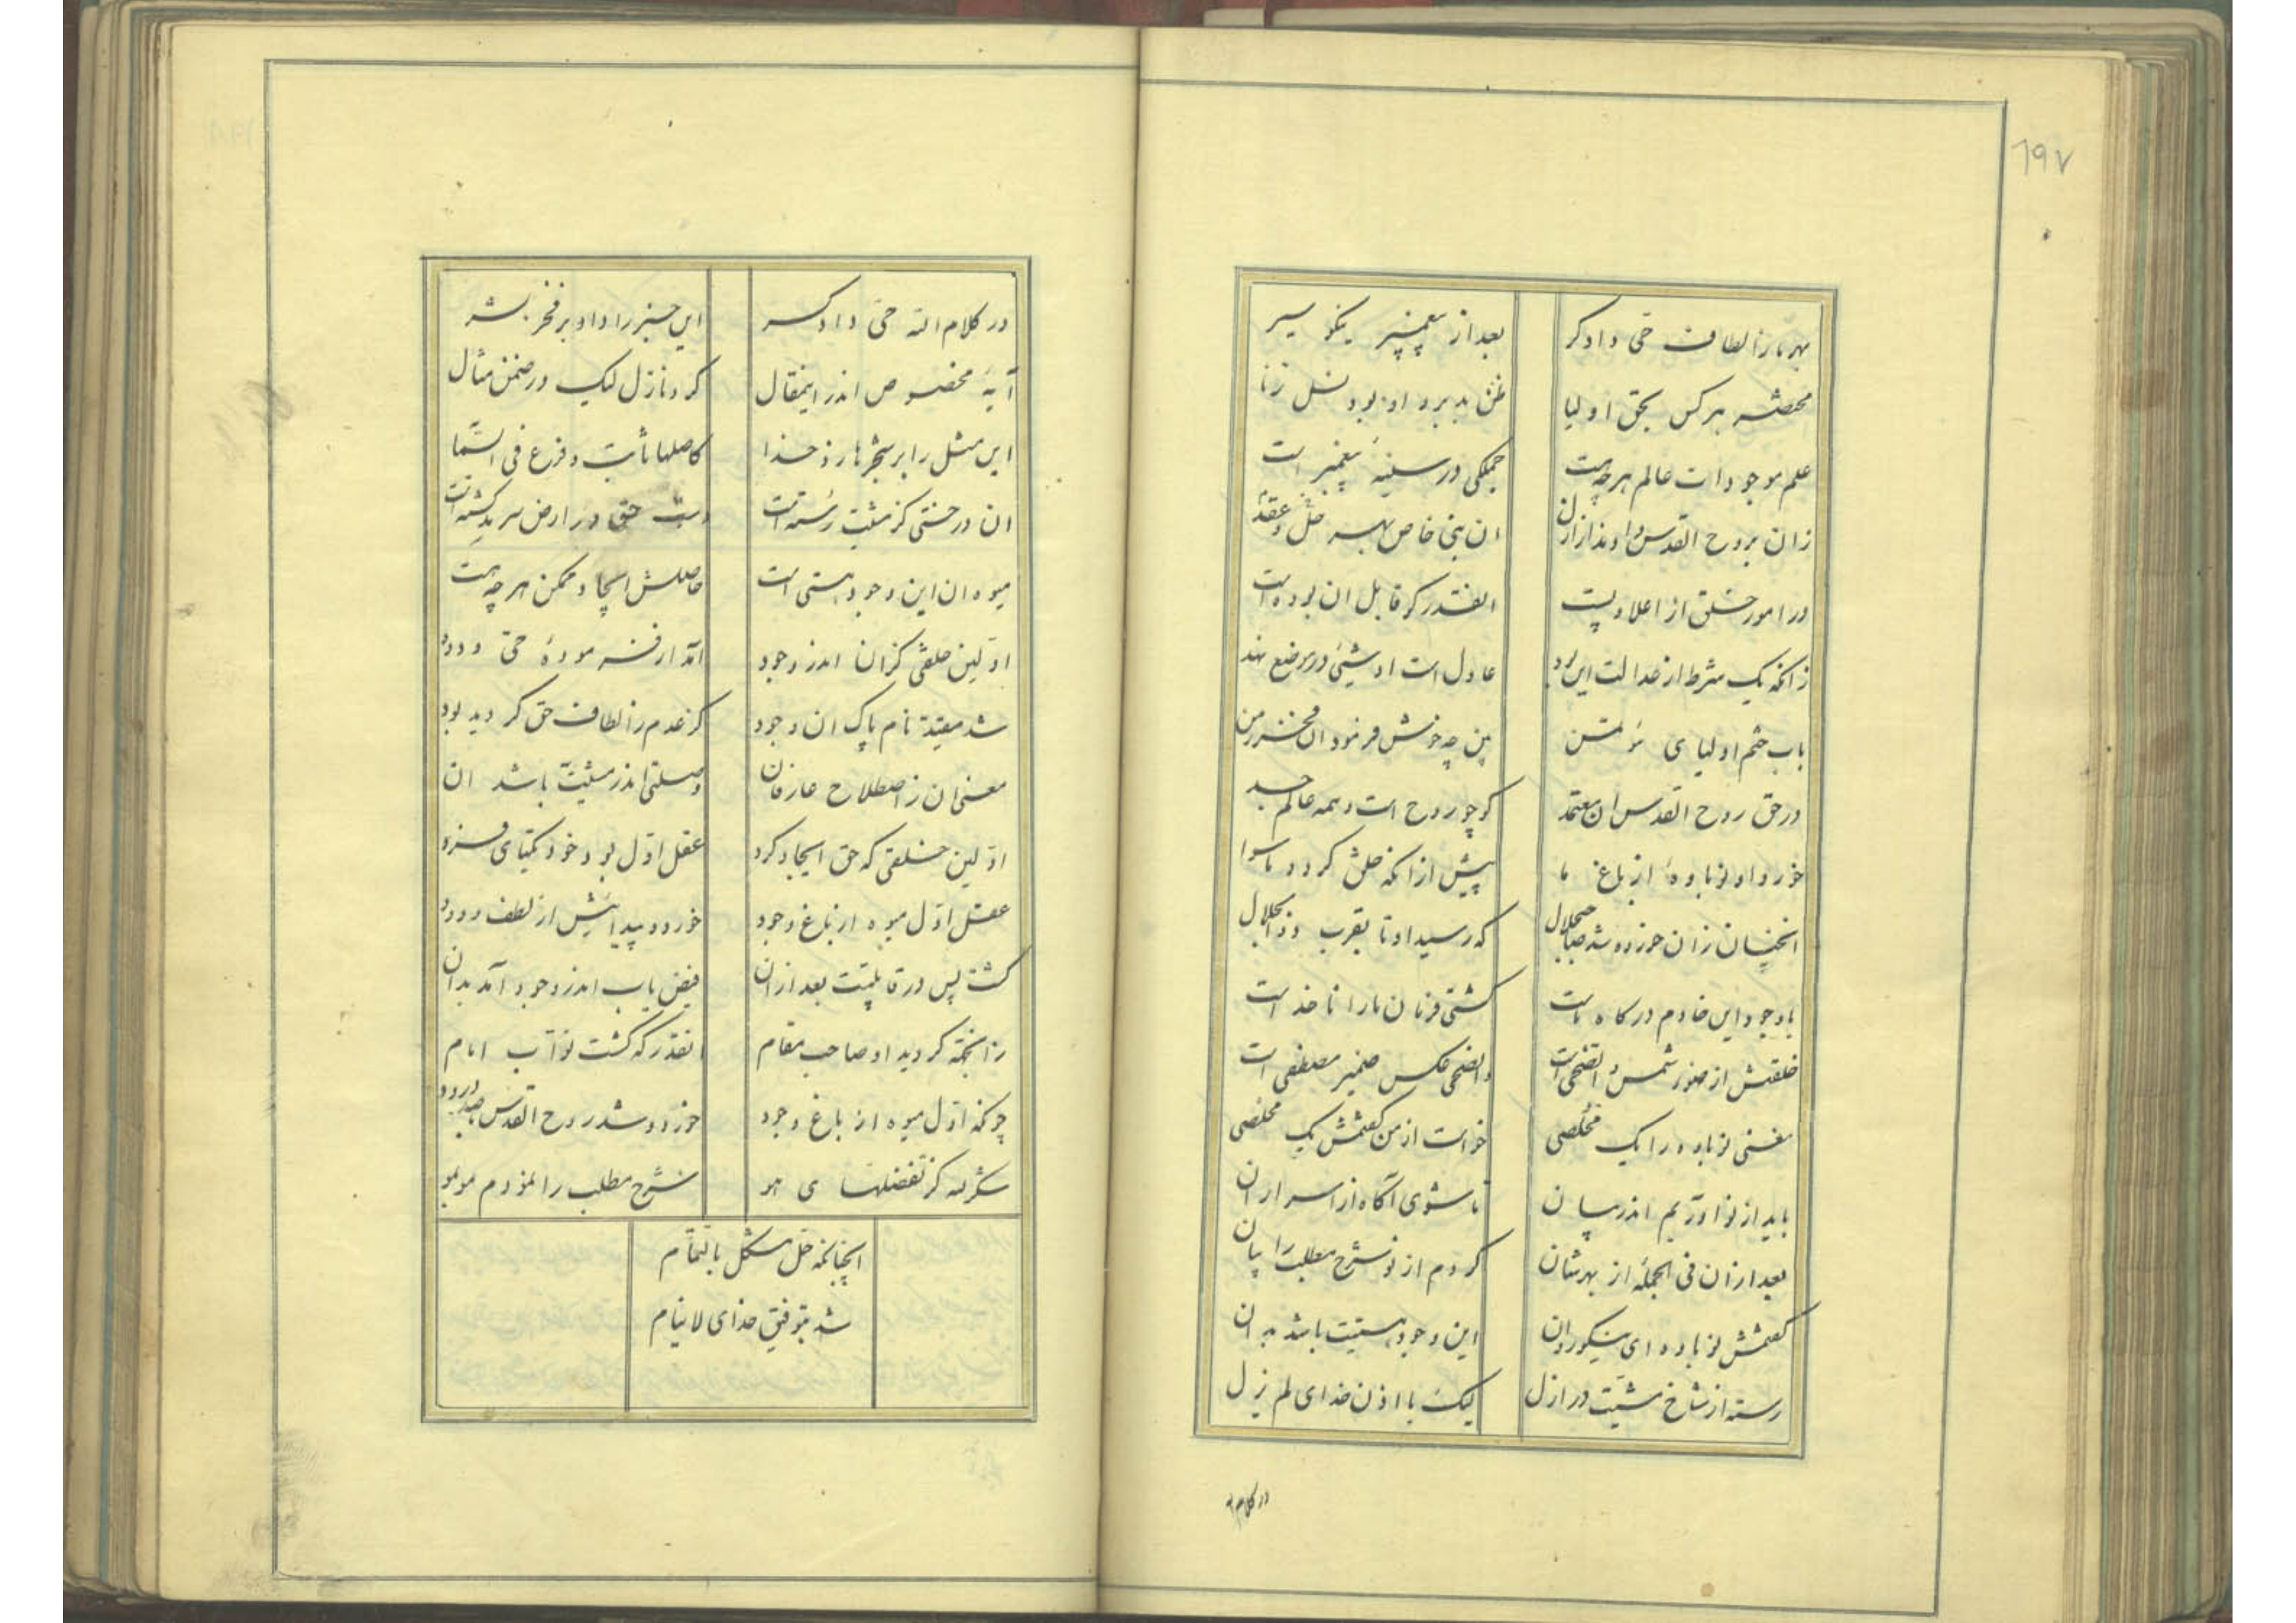 ۶۹۷
بهر ما ز الطاف حی دادگر
بعد از پیغمبر نیکو سیر
هر کس بحق اولیا
ظن بد برد او بود نسل زنا
علم موجودات عالم هر چه هست
جملگی در سینهٔ پیغمبر است
زان بروح القدس داد
ان نبی خاص بهر حل و عقد
در امور خلق از اعلا و پست
انقدر که قابل ان بوده است
زانکه یک شرط از عدالت این بود
عادل است او شیئی در موضع نهد
باب هشم اولیای مؤتمن
بین چه خوش فرمود ان فخر زمن
در حق روح القدس ان معتمد
کو چو روح است و همه عالم جسد
خورد او نوباوهٔ از باغ ما
پیش از انکه خلق گردد ما سوا
انچنان زان خورد و شد صاحب جلال
که رسید او تا بقرب ذوالجلال
باوجود این خادم درگاه ماست
کشتی فرمان ما را ناخداست
خلقتش از نور شمس و الضحی است
والضحی عکس ضمیر مصطفی است
معنی نوباوه را یک مخلصی
خواست از من گفتمش یک مخلصی
باید از نو اوریم اندر بیان
تا شوی آگاه از اسرار ان
بعد ازان فی الجمله از بهرشان
کردم از نو شرح مطلب را بیان
گفتمش نوباوه ای نیکو روان
این وجود هستیت باشد بدان
رسته از شاخ مشیت در ازل
لیک با اذن خدای لم یزل
در کلام
در کلام الله حی دادگر
این خبر را داد بر فخر بشر
آیهٔ مخصوص اندر اینمقال
کرد نازل لیک در ضمن مثال
این مثل را بر شجر ها زد خدا
کاصلها ثابت و فرع فی السما
ان درختی کز مشیت رسته است
دست حق در ارض
میوه ان این وجود هستی است
حاصلش ایجاد ممکن هر چه هست
اولین خلقی کزان اندر وجود
آمد از فرمودهٔ حی ودود
شد مقید نام پاک ان وجود
کز عدم ز الطاف حق گردید بود
معنی ان ز اصطلاح عارفان
وصلتی اندر مشیت باشد ان
اولین خلقی که حق ایجاد کرد
عقل اول بود خود یکتای فرد
عقل اول میوه از باغ وجود
خورد و پیدایش از لطف ودود
گشت پس در قابلیت بعد ازان
فیض یاب اندر وجود آمد بدان
زانجهة گردید او صاحب مقام
انقدر که گشت نواب امام
چونکه اول میوه از باغ وجود
خورد و شد روح القدس درود
شکر لله کز تفضلهای هو
شرح مطلب را نمودم موبمو
انچنانکه حل مشکل بالتمام
شد بتوفیق خدای لاینام